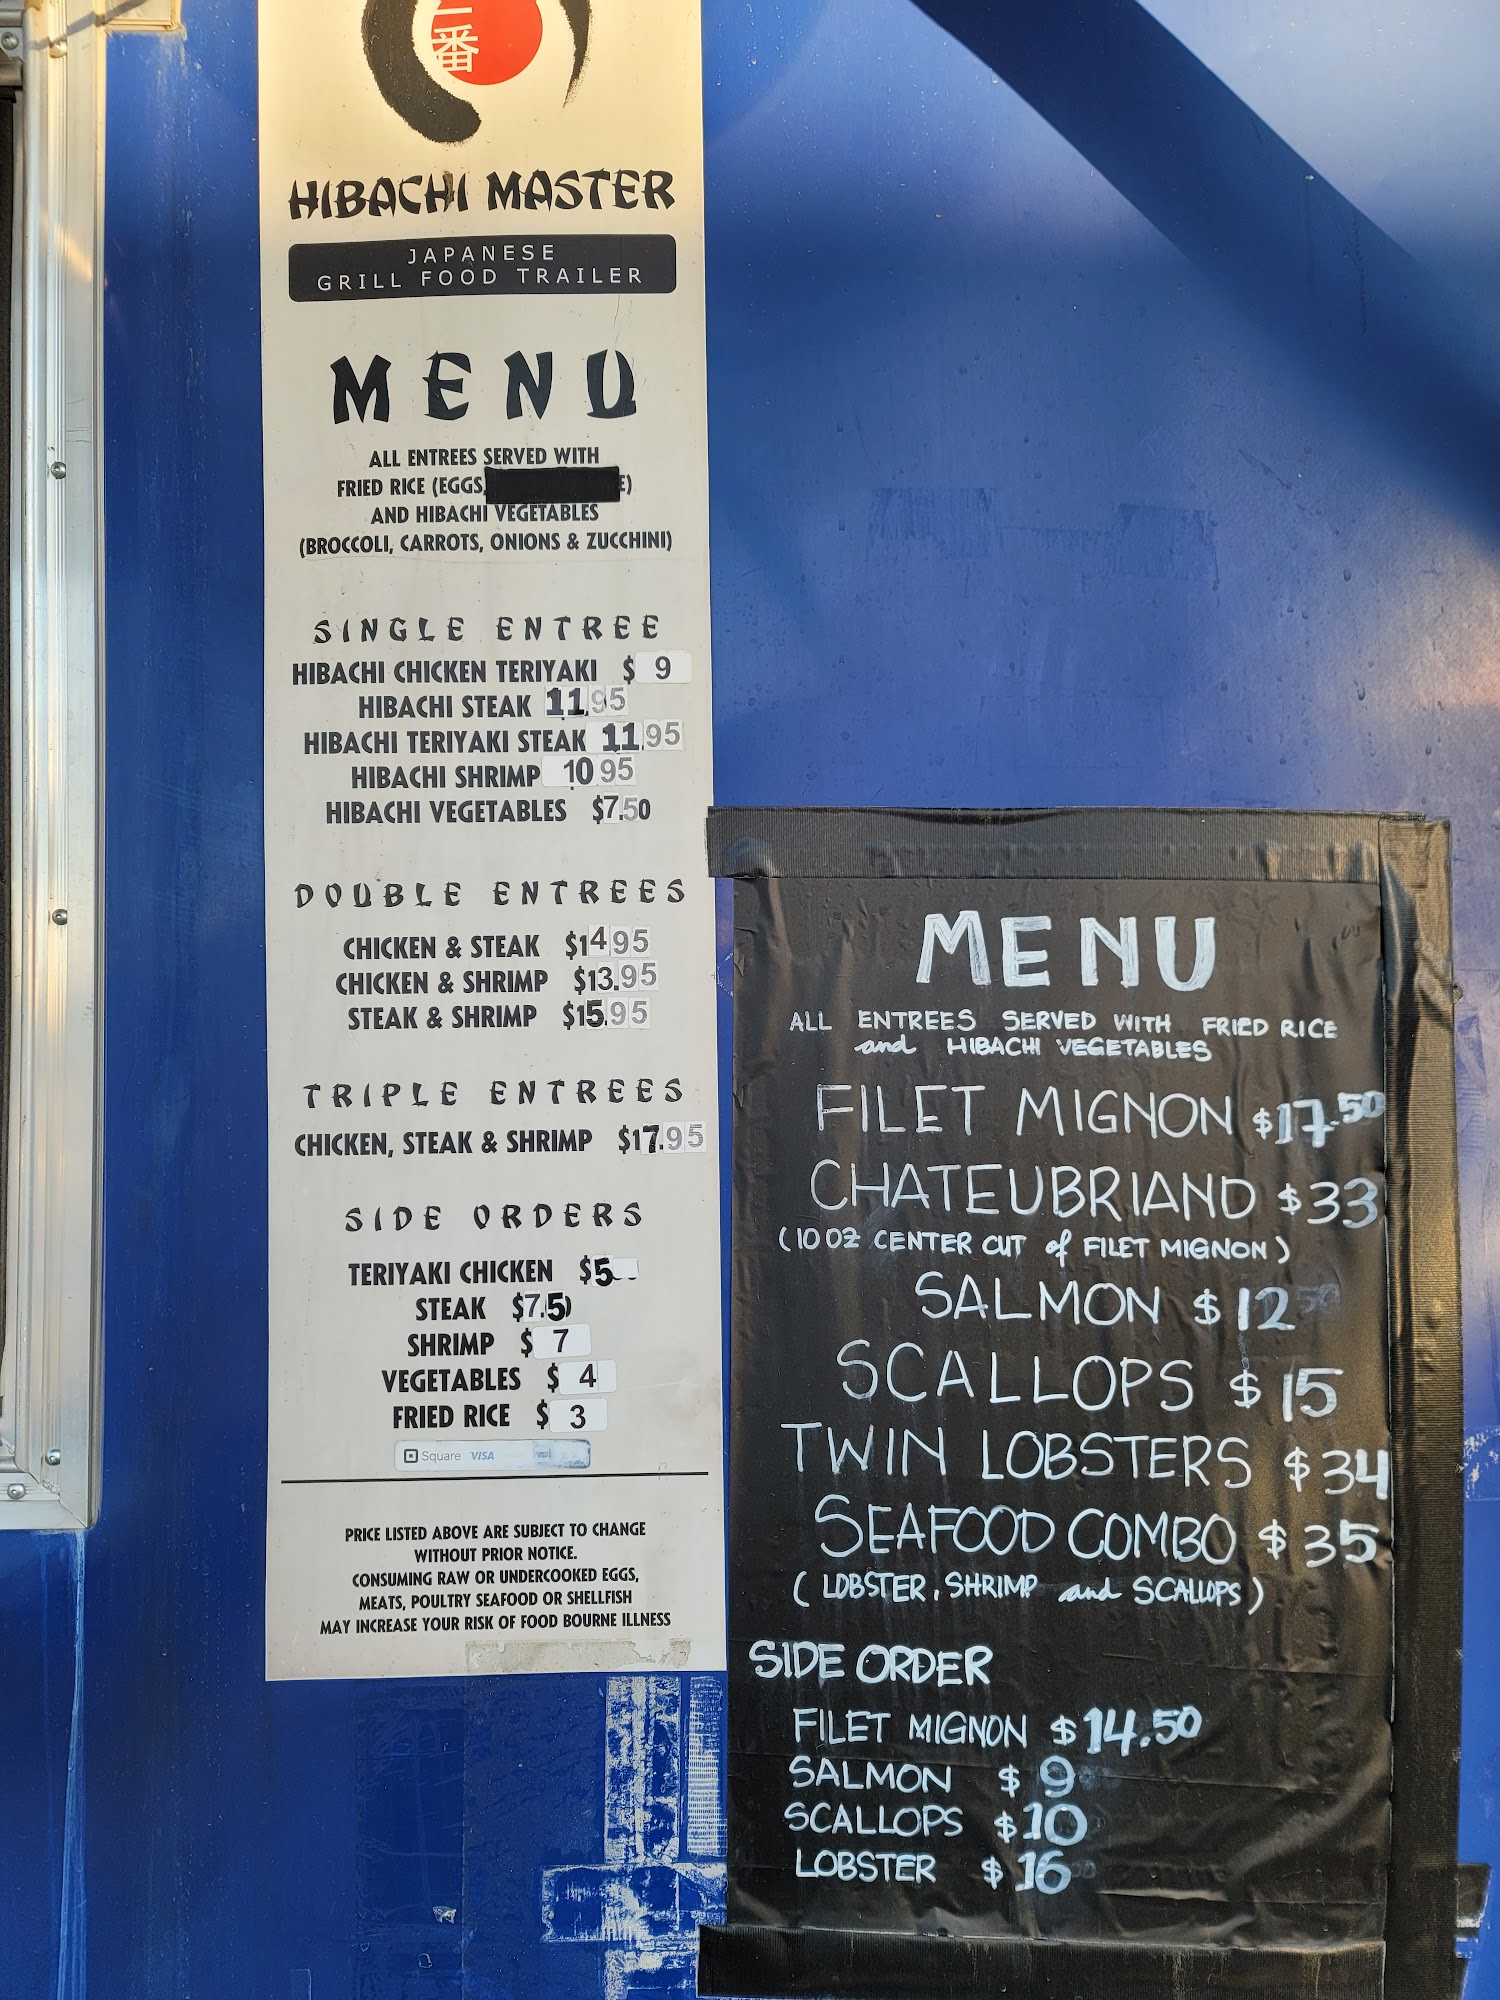 番
HIBACHI MASTER
JAPANESE
GRILL FOOD TRAILER
MENU
ALL ENTREES SERVED WITH
FRIED RICE (EGGS, E)
AND HIBACHI VEGETABLES
(BROCCOLI, CARROTS, ONIONS & ZUCCHINI)
SINGLE ENTREE
HIBACHI CHICKEN TERIYAKI $ 9
HIBACHI STEAK 11.95
HIBACHI TERIYAKI STEAK 11.95
HIBACHI SHRIMP 10 95
HIBACHI VEGETABLES $7.50
DOUBLE ENTREES
CHICKEN & STEAK $14.95
CHICKEN & SHRIMP $13.95
STEAK & SHRIMP $15.95
TRIPLE ENTREES
CHICKEN, STEAK & SHRIMP $17.95
SIDE ORDERS
TERIYAKI CHICKEN $5
STEAK $7.50
SHRIMP $ 7
VEGETABLES $ 4
FRIED RICE $ 3
Square VISA
PRICE LISTED ABOVE ARE SUBJECT TO CHANGE
WITHOUT PRIOR NOTICE.
CONSUMING RAW OR UNDERCOOKED EGGS,
MEATS, POULTRY SEAFOOD OR SHELLFISH
MAY INCREASE YOUR RISK OF FOOD BOURNE ILLNESS
MENU
ALL ENTREES SERVED WITH FRIED RICE
and HIBACHI VEGETABLES
FILET MIGNON $17.50
CHATEUBRIAND $33
(10 OZ CENTER CUT of FILET MIGNON)
SALMON $12
SCALLOPS $15
TWIN LOBSTERS $34
SEAFOOD COMBO $35
(LOBSTER, SHRIMP and SCALLOPS)
SIDE ORDER
FILET MIGNON $14.50
SALMON $9
SCALLOPS $10
LOBSTER $16